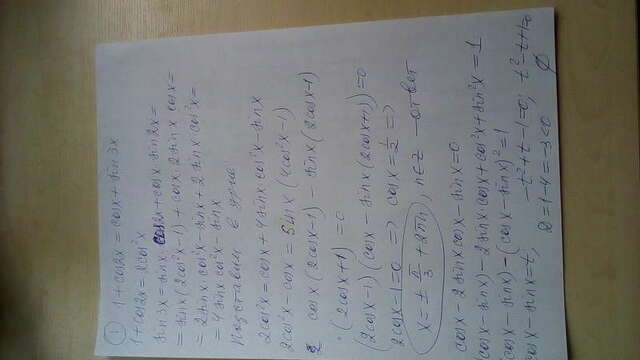 1 1+cos2x = cosx + sin3x
1+cos2x = 2cos²x
sin3x = sinx · cos2x + cosx · sin2x =
= sinx(2cos²x-1) + cosx · 2sinx cosx =
= 2sinx · cos²x - sinx + 2sinx cos²x =
= 4sinx · cos²x - sinx
Подставим в ур-ие
2cos²x = cosx + 4sinx · cos²x - sinx
2cos²x - cosx = sinx (4cos²x-1)
cosx (2cosx-1) - sinx (2cosx-1)
· (2cosx+1) = 0
(2cosx-1)(cosx - sinx(2cosx+1)) = 0
2cosx-1=0 => cosx = 1/2 =>
x = ± π/3 + 2πn, n∈Z - ответ
cosx - 2sinx cosx - sinx = 0
(cosx - sinx) - 2sinx · cosx + cos²x + sin²x = 1
(cosx - sinx) - (cosx - sinx)² = 1
cosx - sinx = t, -t²+t-1=0; t²-t+1=0
D = 1-4 = -3<0 ∅